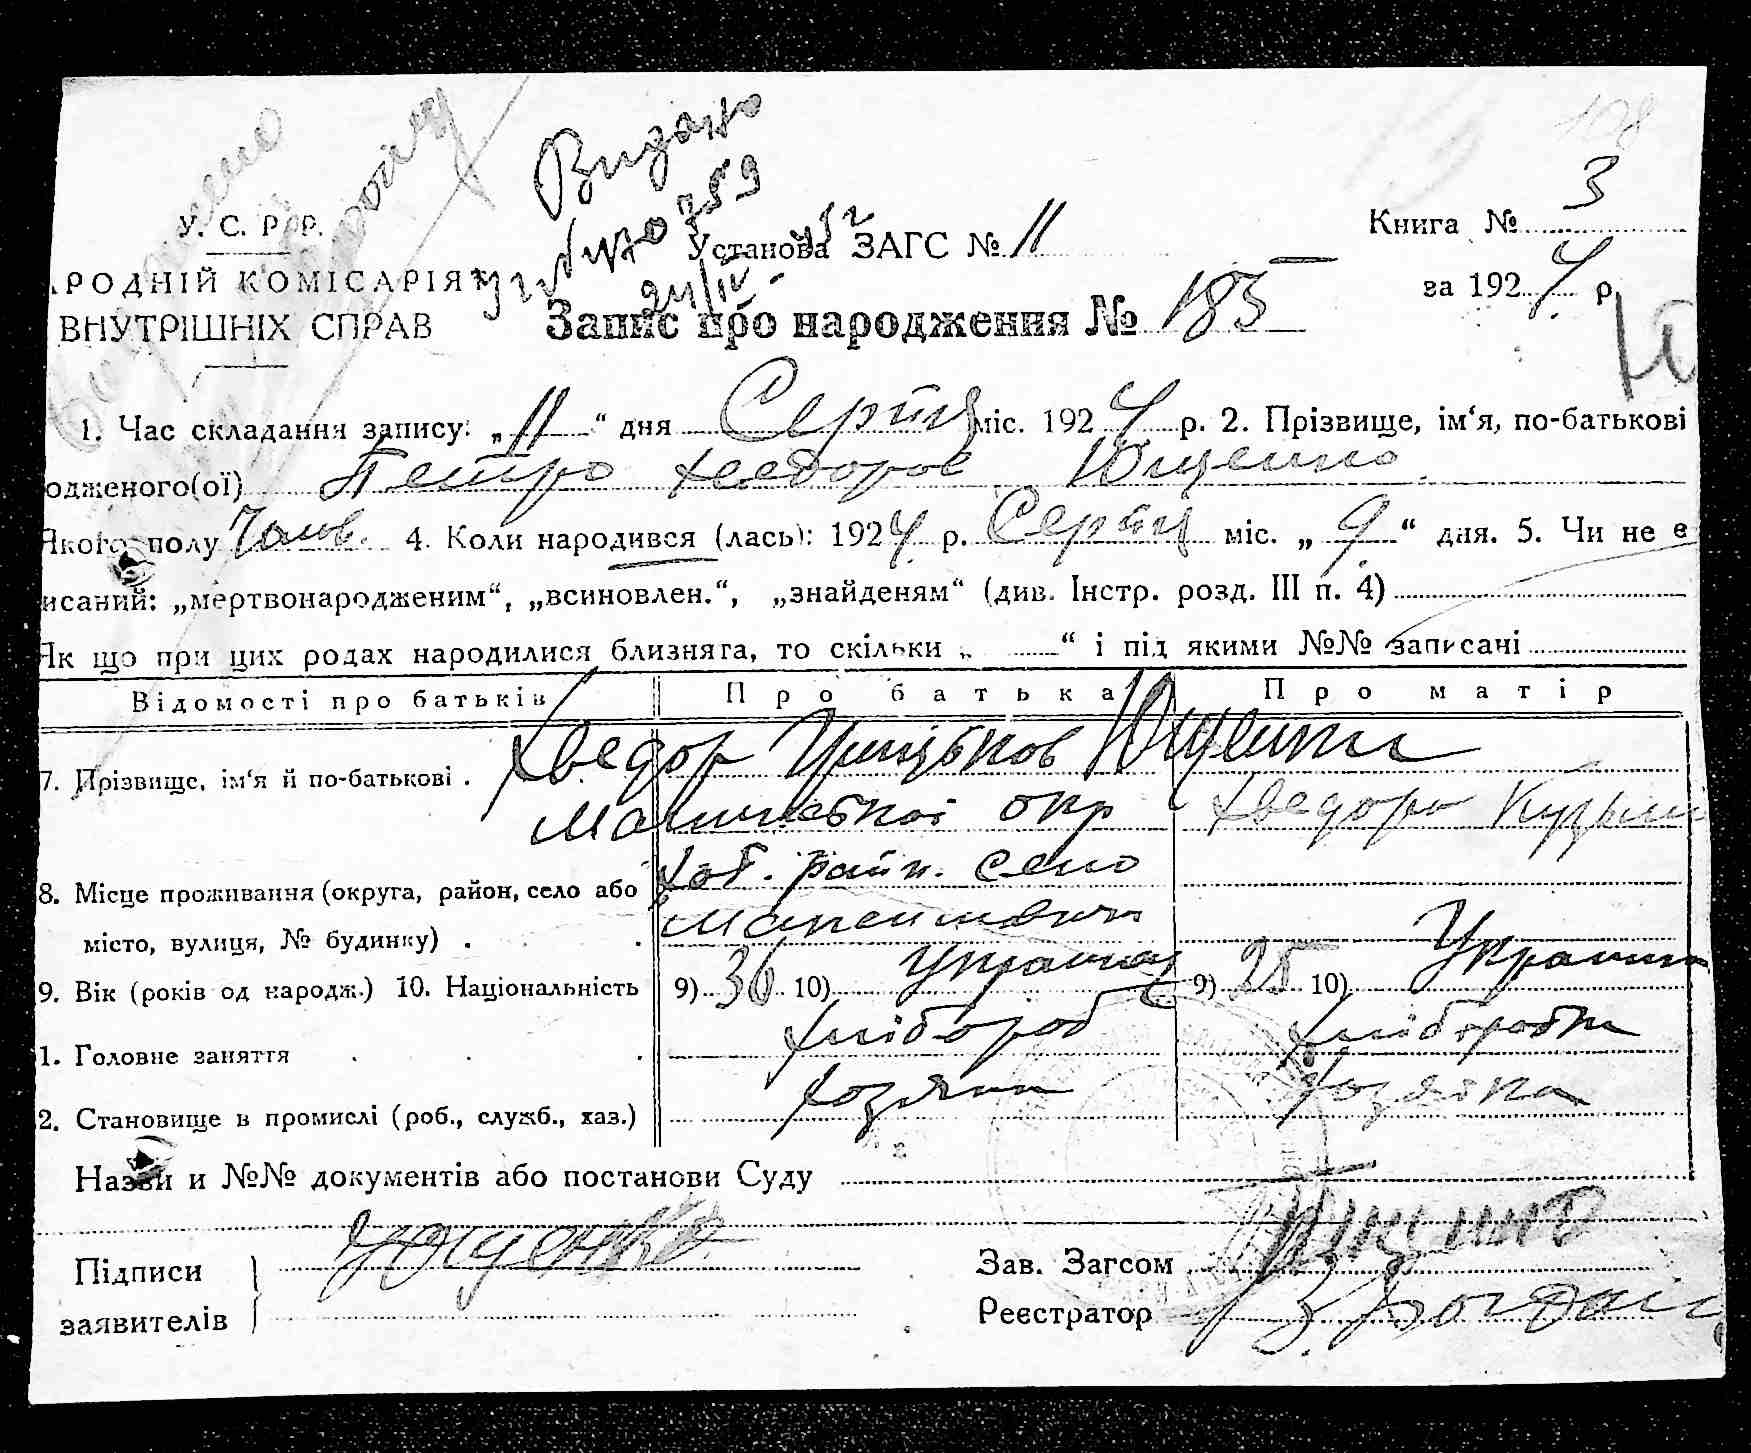 Видано
У. С. Р Р Р.
Установа ЗАГС № 11
Книга № 3
АРОДНІЙ КОМІСАРІЯТ
за 1924 р.
24/IV
ВНУТРІШНІХ СПРАВ
Запис про народження № 185
1. Час складання запису: „11“ дня Серпця міс. 1924 р. 2. Прізвище, ім‘я, по-батькові
одженого(ої) Петро Хведоров Ющенко
Якого полу Чолов. 4. Коли народився (лась): 1924 р. Серпця міс. „9“ дня. 5. Чи не є
исаний: „мертвонародженим“, „всиновлен.“, „знайденям“ (див. Інстр. розд. III п. 4)
Як що при цих родах народилися близнята, то скільки „ “ і під якими №№ записані
Відомості про батьків Про батька Про матір
7. Прізвище, ім‘я й по-батькові . Хведор Грицьков Ющенко
окр Хведора
8. Місце проживання (округа, район, село або Хоб. район. село
місто, вулиця, № будинку) .
9. Вік (років од народж.) 10. Національність 9) 36 10) 9) 25 10)
1. Головне заняття . . . хлібороб хліборобка
2. Становище в промислі (роб., служб., хаз.) хозяин хозяйка
Назви и №№ документів або постанови Суду
Ющенко
Підписи Зав. Загсом
заявителів Реєстратор